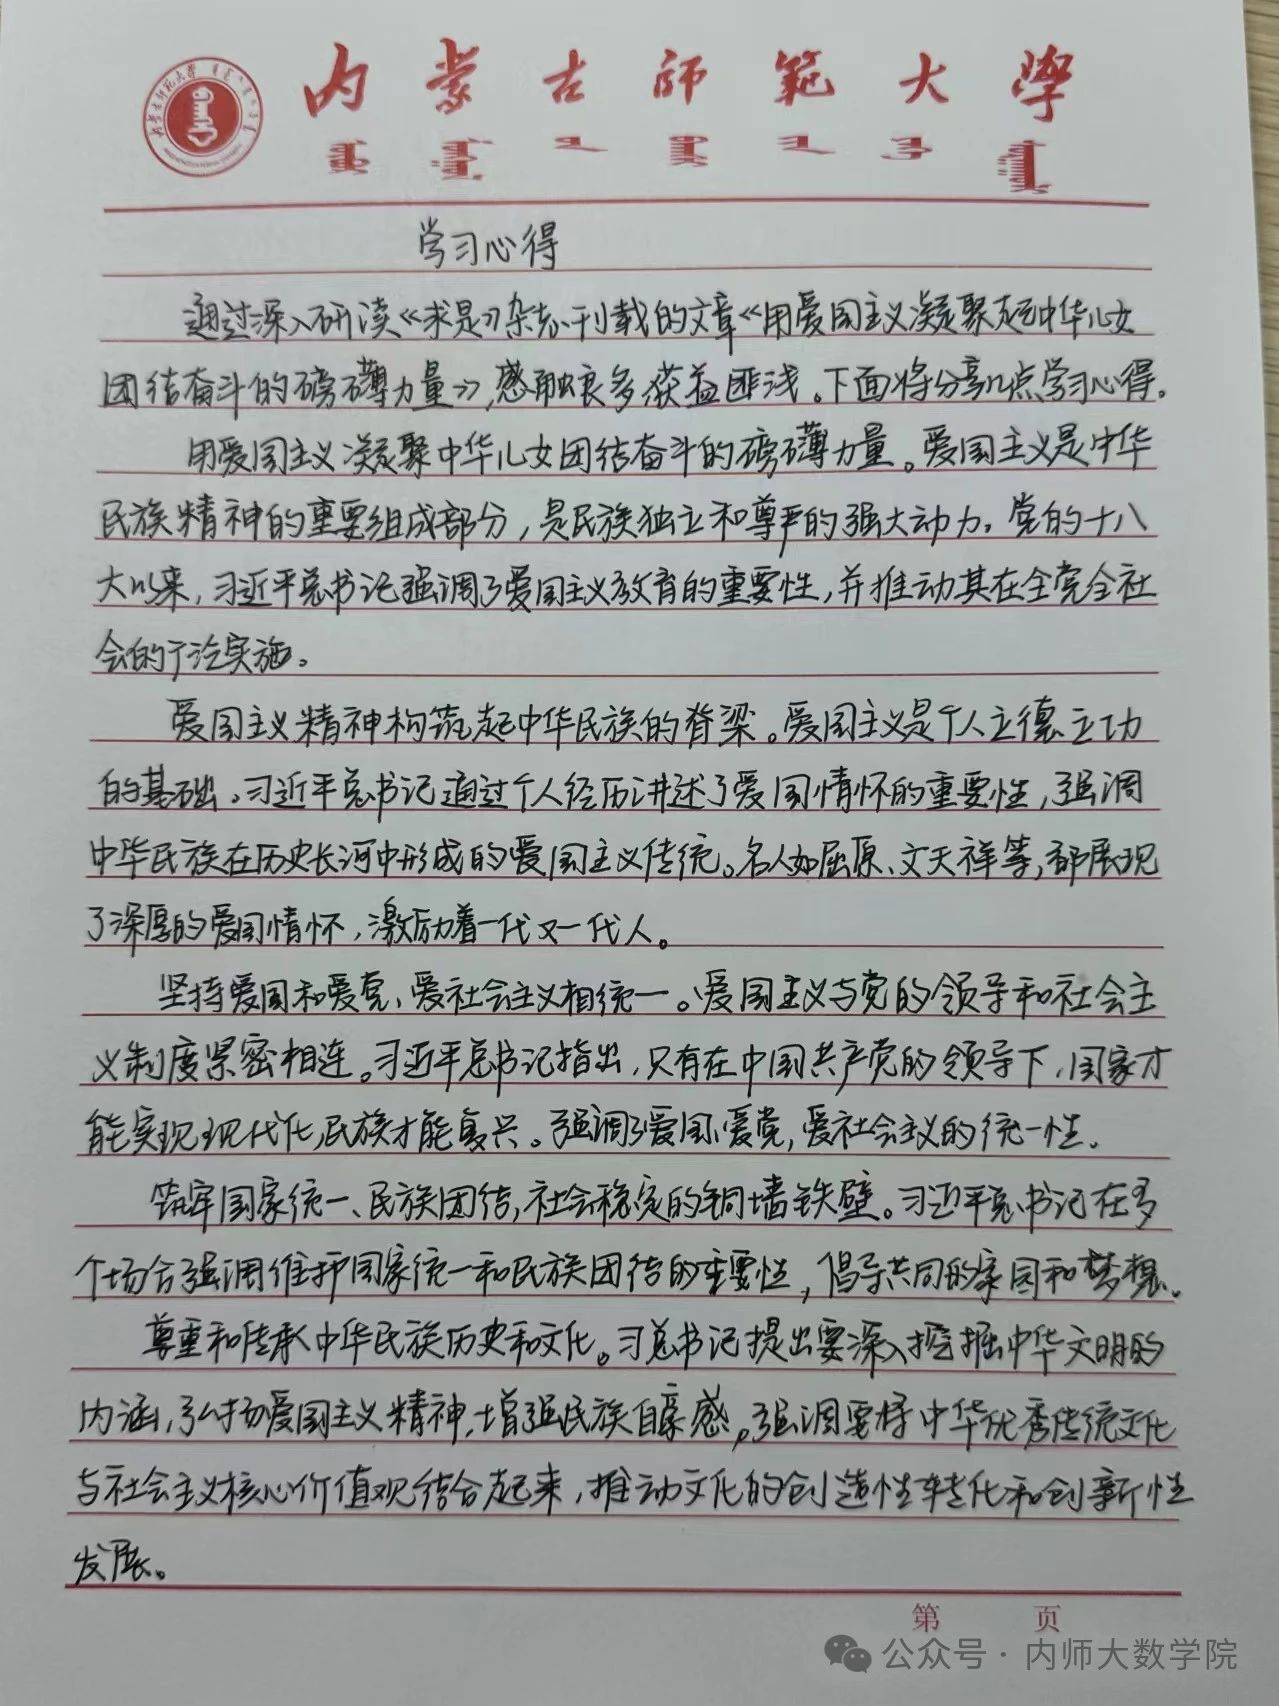 内蒙古师范大学
学习心得
通过深入研读《求是》杂志刊载的文章《用爱国主义凝聚起中华儿女
团结奋斗的磅礴力量》,感触良多获益匪浅。下面将分享几点学习心得。
用爱国主义凝聚中华儿女团结奋斗的磅礴力量。爱国主义是中华
民族精神的重要组成部分,是民族独立和尊严的强大动力。党的十八
大以来,习近平总书记强调了爱国主义教育的重要性,并推动其在全党全社
会的广泛实施。
爱国主义精神构筑起中华民族的脊梁。爱国主义是个人立德立功
的基础。习近平总书记通过个人经历讲述了爱国情怀的重要性,强调
中华民族在历史长河中形成的爱国主义传统。名人如屈原、文天祥等,都展现
了深厚的爱国情怀,激励着一代又一代人。
坚持爱国和爱党、爱社会主义相统一。爱国主义与党的领导和社会主
义制度紧密相连。习近平总书记指出,只有在中国共产党的领导下,国家才
能实现现代化,民族才能复兴。强调了爱国、爱党,爱社会主义的统一性。
筑牢国家统一、民族团结,社会稳定的铜墙铁壁。习近平总书记在多
个场合强调维护国家统一和民族团结的重要性,倡导共同的家园和梦想。
尊重和传承中华民族历史和文化。习总书记提出要深入挖掘中华文明的
内涵,弘扬爱国主义精神,增强民族自豪感。强调要将中华优秀传统文化
与社会主义核心价值观结合起来,推动文化的创造性转化和创新性
发展。
第 页
公众号·内师大数学院